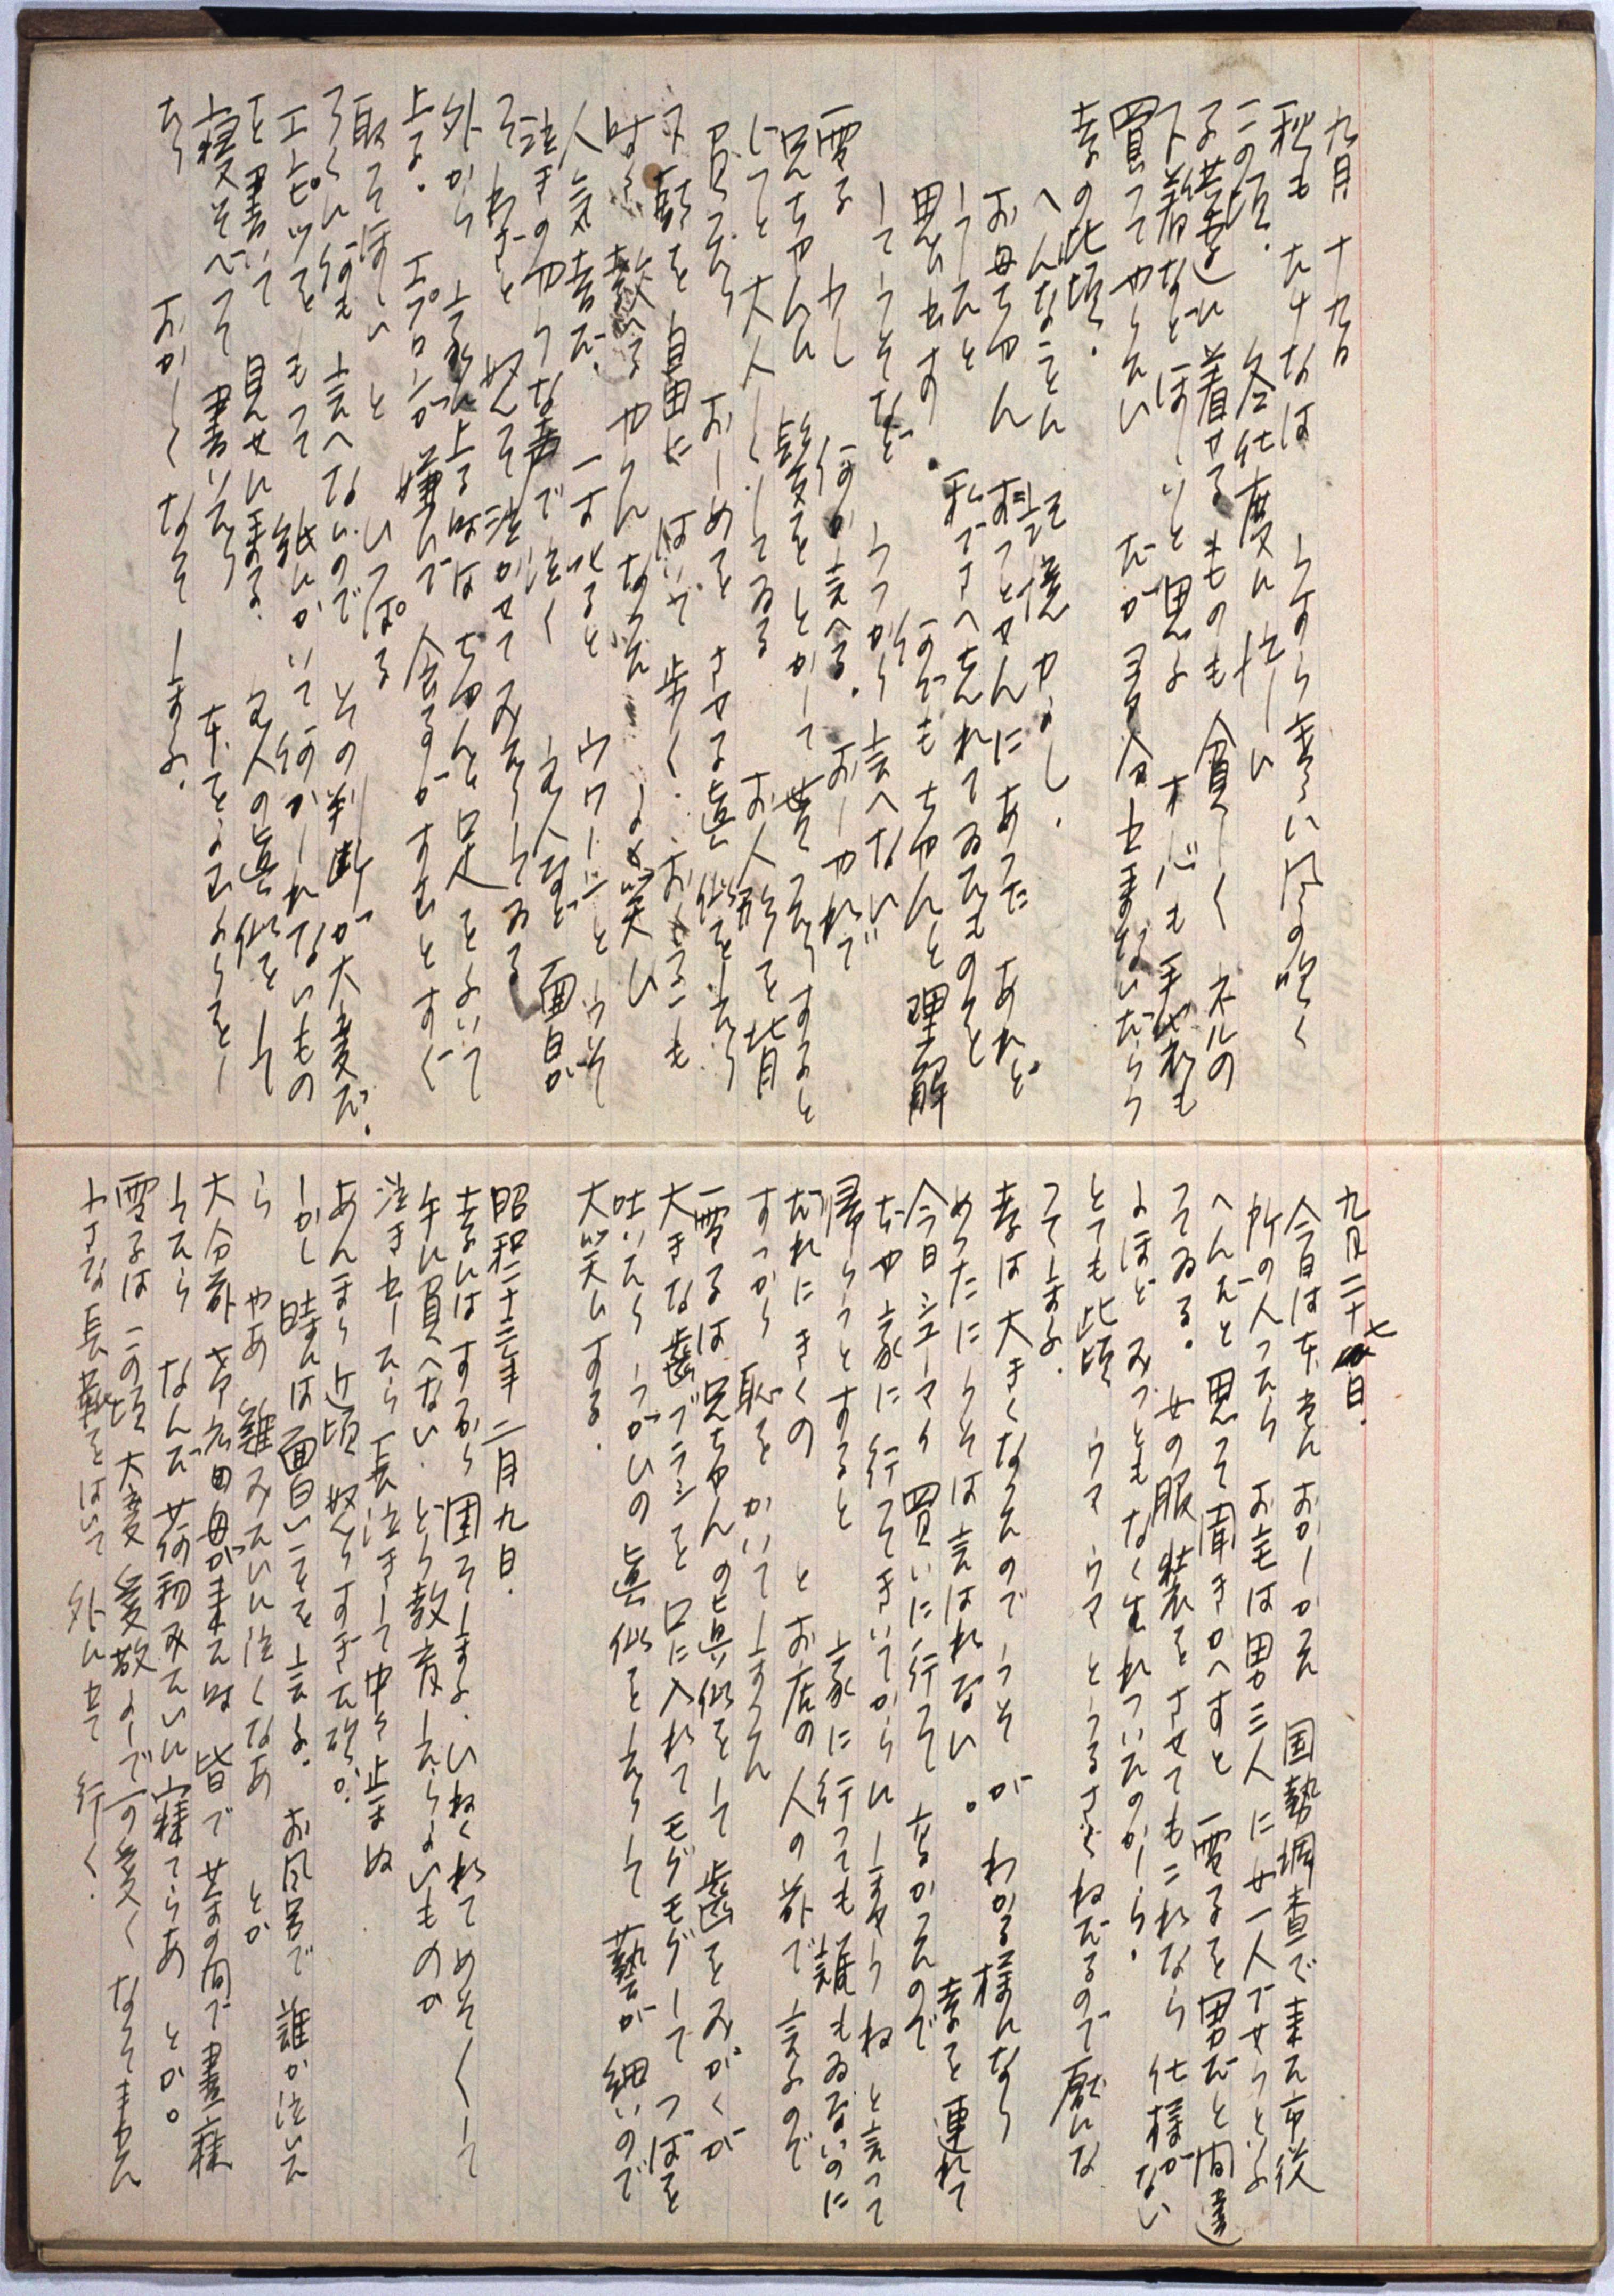 九月十九日
秋も たけなは うすら寒い風の吹く
この頃。 冬仕度に忙しい
子供達に着せるものも貧しく ネルの
下着などほしいと思ふ オシメも毛糸も
買ってやりたい だが 配分出来ないだらう
幸の此頃。
へんなことに 記憶カよし、
お母ちやん 打つとサんにあった あれど
しうしたと 私でさへ忘れてゐるものを
思ひ出す。 何でも ちやんと理解
してうそなど うつかり言へない
雪子 少し 何か言へる。 おしやれで
兄ちやんに 髪をとかして貰ったりすると
じつと 大人しくしてゐる お人形を背
負つたり おしめを させる真似をしたり
又靴を 自由に はいて 歩く。 おしつこも
時々 教へる やうになつた よく笑ひ
人気者だ。 一寸叱ると ウワーンとうそ
泣きのやうな声で泣く 主人など 面白が
つて わざと 怒つて泣かせてみたりしてゐる
外から 家に上る時は ちやんと足をふいて
上る。 エプロンが嫌ひで 食事がすむとすぐ
取つてほしいと ひつぱる
ろくに何も 言へないので その判断が大変だ。
エンピツを もつて 紙にかいて何かしれないもの
を書いて 見せに来る。 主人の真似をして
寝そべつて 書いたり 本をよむふりをし
たり おかしくなつてしまふ。
九月二十七日。
今日は本当に おかしかった 国勢調査で来た市役
所の人つたら お宅は男三人に女一人でせうと云ふ
へんだと思つて聞きかへすと 雪子を男だと間違
つてゐる。 女の服装をさせてもこれなら仕様がない
よほど みつともなく生れついたのかしら。
とても此頃 ウマ ウマ とうるさくねだるので厭にな
つてしまふ。
幸は大きくなつたのでうそが わかる様になり
めつたにうそは言はれない。 幸を連れて
今日シユーマイ買いに行つて なかつたので
ぢや家に行つてきいてからにしませうねと言つて
帰らうとすると 家に行つても誰もゐないのに
だれにきくの とお店の人の前で言ふので
すつかり恥をかいてしまつた
雪子は兄ちやんの真似をして 歯をみがくが
大きな歯ブラシを口に入れてモグモグしてつばを
吐いたり うがひの真似をしたりして 藝が細いので
大笑ひする。
昭和二十三年二月九日。
幸にはすつかり困つてしまふ。ひねくれてめそくして
手に負へない。どう教育したらよいものか
泣き出したら 長泣きして中々止まぬ
あんまり近頃 怒りすぎた故か。
しかし 時には面白いことを言ふ。 お風呂で誰か泣いた
ら やあ 雞みたいに泣くなあ とか
大分前 幸の祖母が来た時 皆で茶の間で晝寝
してたら なんだ 荷物みたいに寝てらあ とか。
雪子は この頃 大変 愛敬よしで可愛くなつて来た
小さな長靴をはいて 外に出て行く。